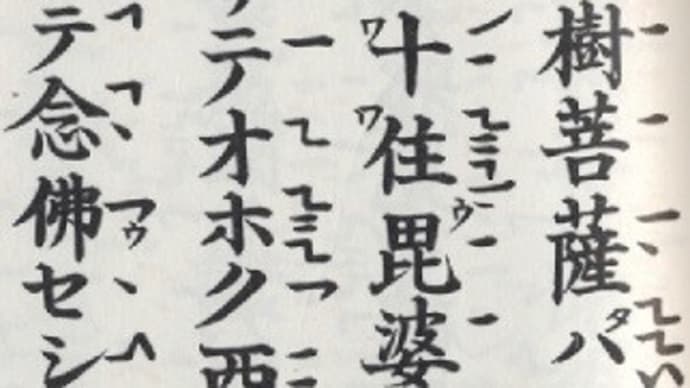 樹菩薩ハ
十住毘婆
テオホク西
テ念佛セシ